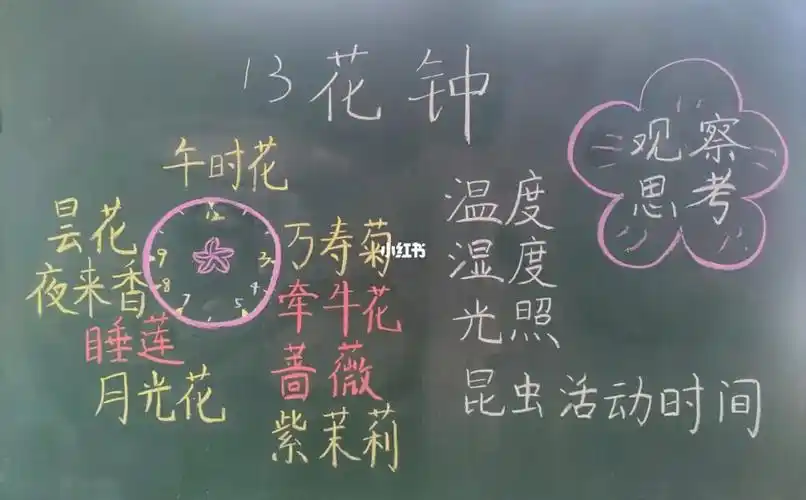 13 花钟
午时花
昙花
夜来香
睡莲
月光花
12
3
4
5
7
8
9
万寿菊
牵牛花
蔷薇
紫茉莉
小红书
温度
湿度
光照
昆虫活动时间
观察
思考